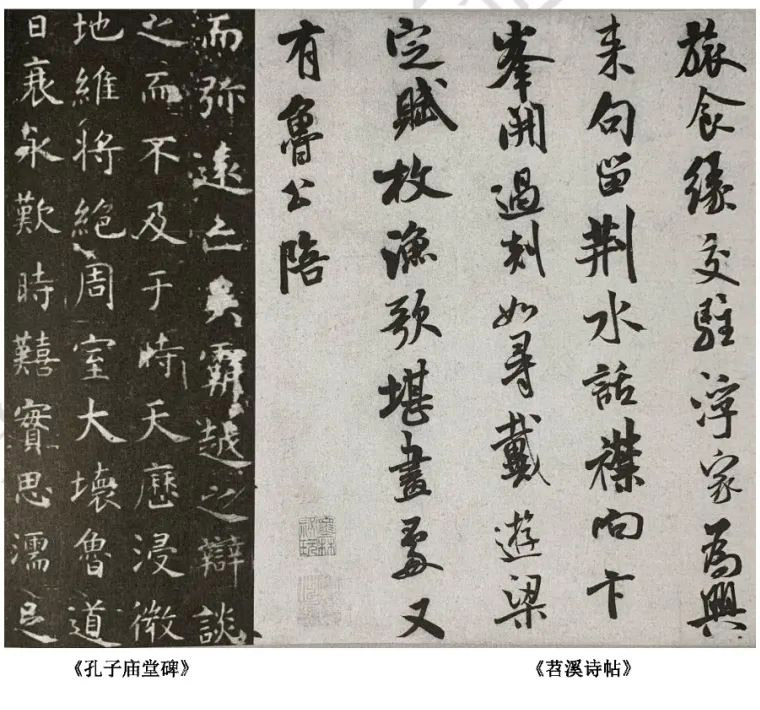 而弥遠亡吴霸越之辯談
之而不及于時天歷浸微
地維將絶周室大壞魯道
日衰永歎時囏實思濡足
《孔子庙堂碑》
旅食緣交駐浮家為興
来句留荆水話襟向卞
峯開過剡如尋戴遊梁
定賦枚漁歌堪畫處又
有魯公陪
《苕溪诗帖》